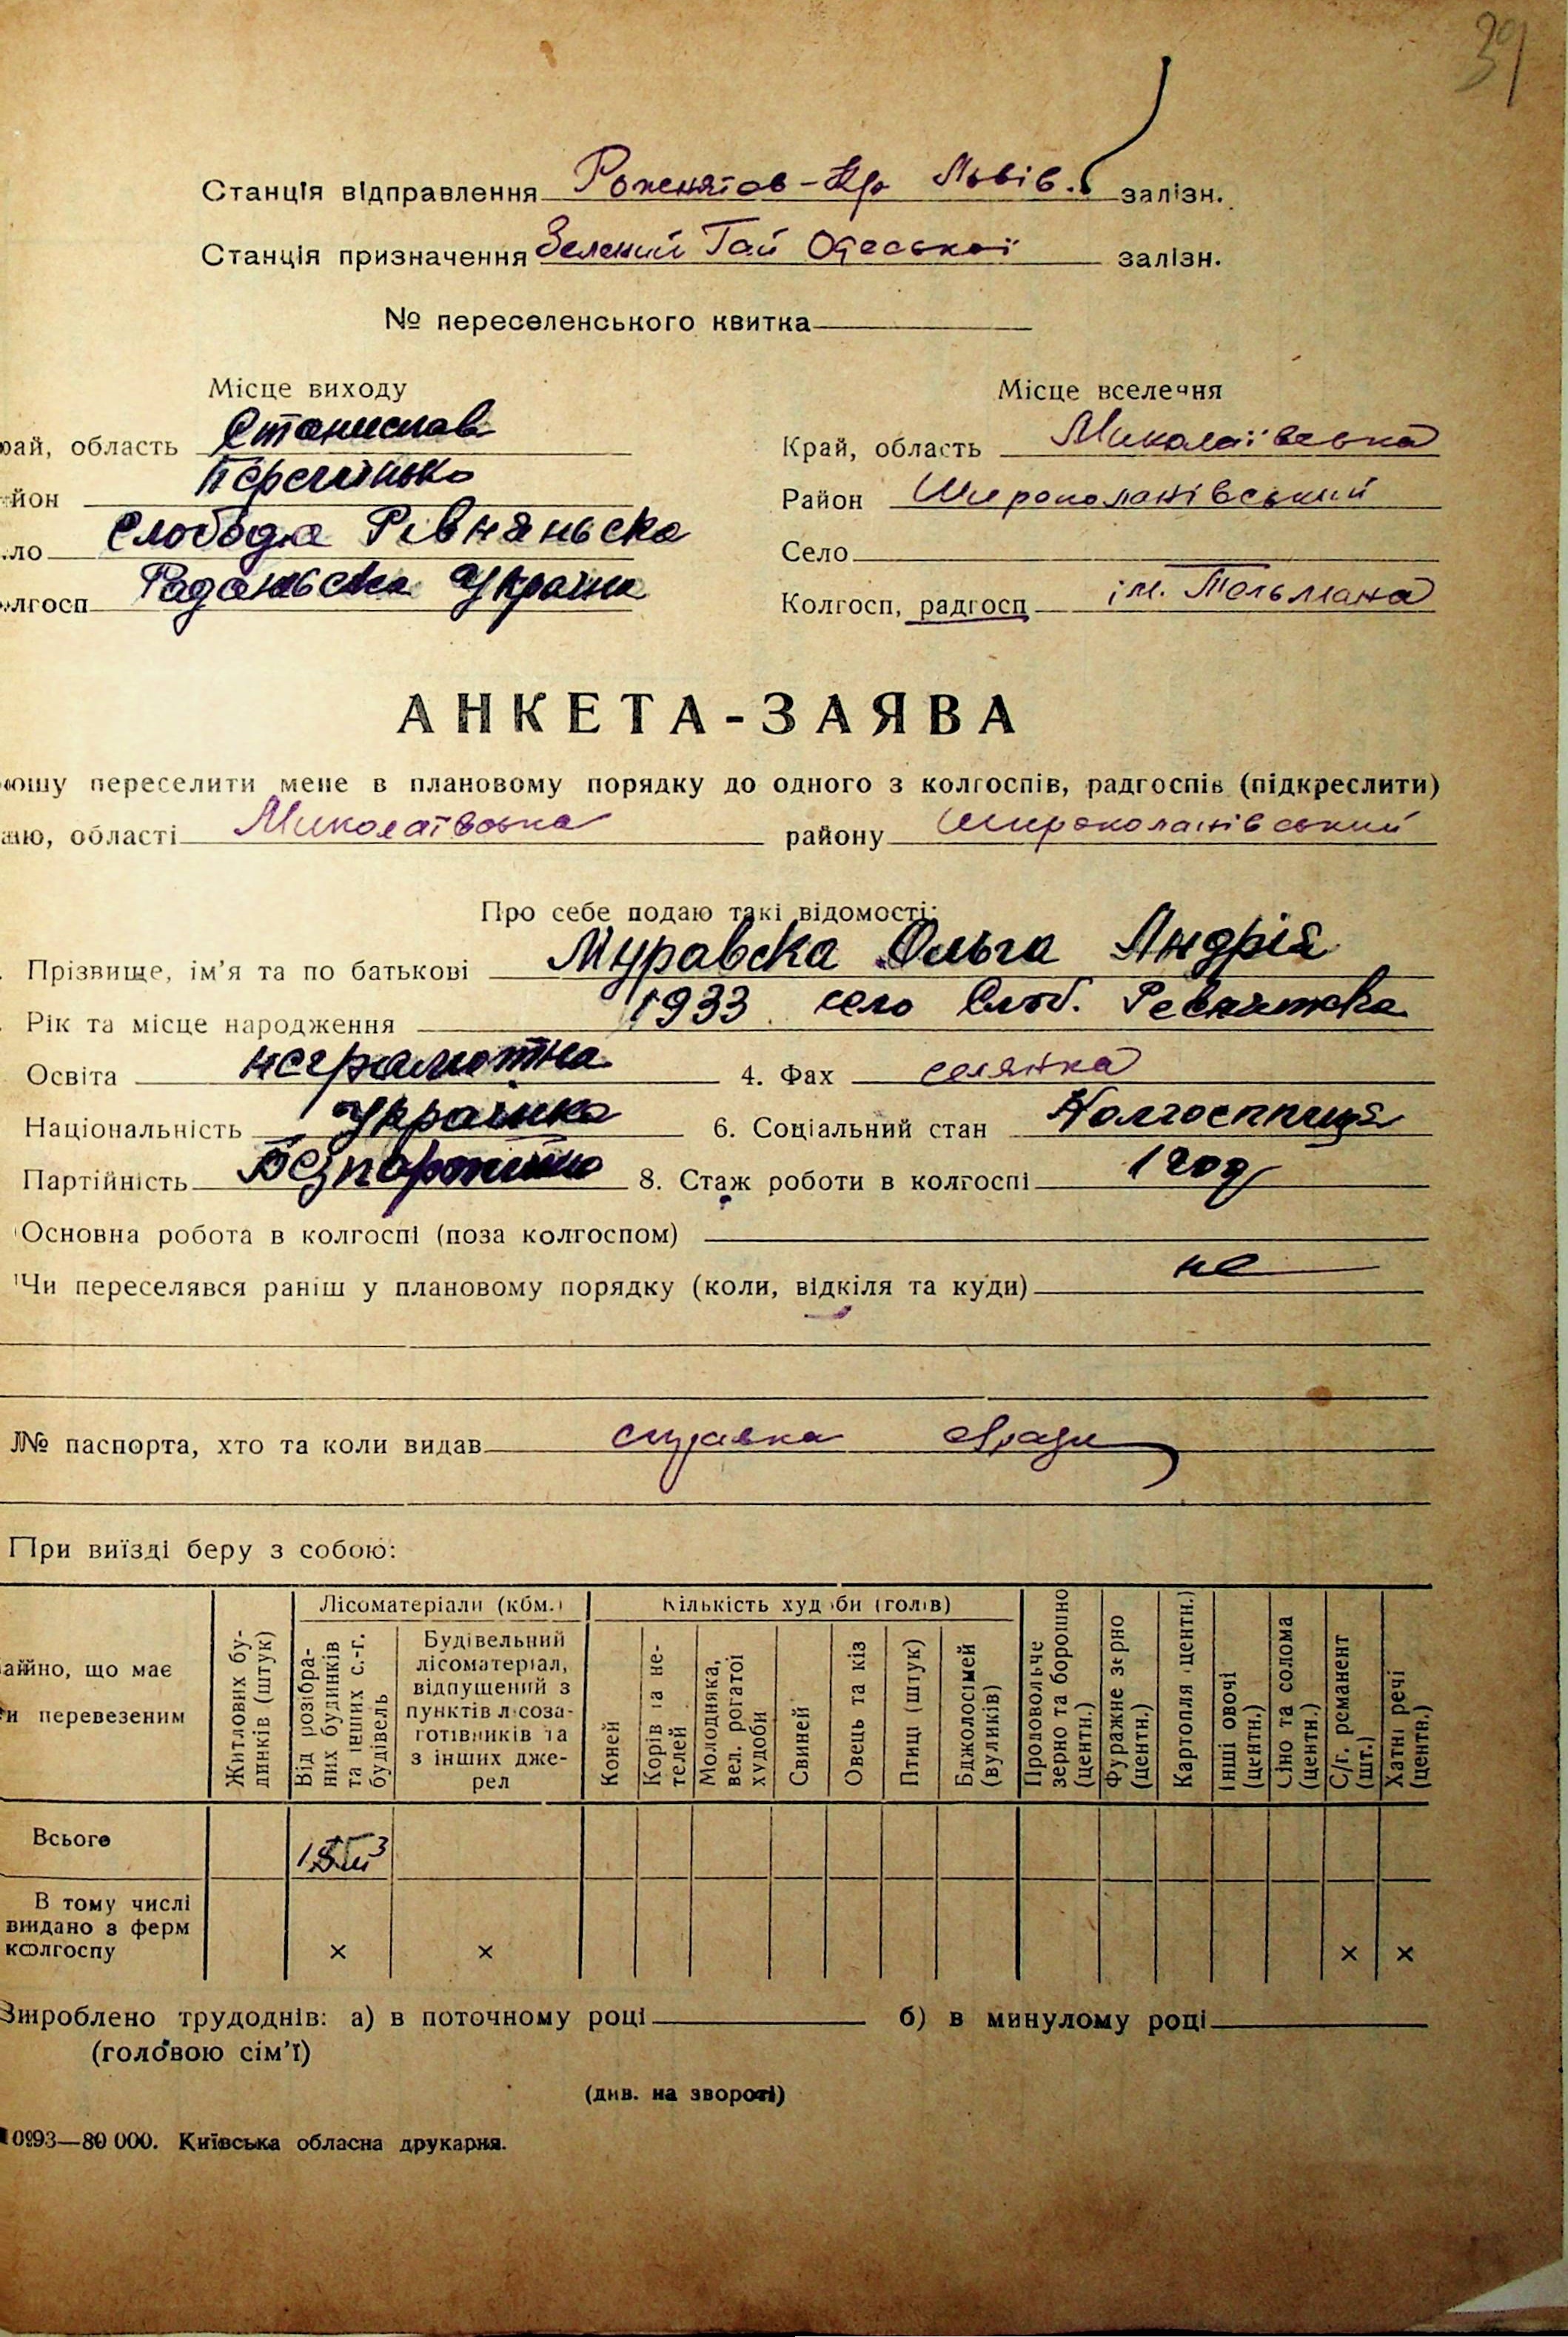 39
Станція відправлення Рожнятов-Кр Львів. залізн.
Станція призначення Зелений Гай Одеської залізн.
№ переселенського квитка
Місце виходу Місце вселення
рай, область Станислав Край, область Миколаївська
йон Перегінсько Район Широколанівський
ло Слобода Рівняньска Село
лгосп Радянська Україна Колгосп, радгосп ім. Тельмана
АНКЕТА-ЗАЯВА
ошу переселити мене в плановому порядку до одного з колгоспів, радгоспів (підкреслити)
аю, області Миколаївська району Широколанівський
Про себе подаю такі відомості:
Прізвище, ім'я та по батькові Муравска Ольга Андрія
Рік та місце народження 1933 село Слоб.
Освіта неграмотна 4. Фах селянка
Національність Українка 6. Соціальний стан Колгоспниця
Партійність 8. Стаж роботи в колгоспі 1 год
Основна робота в колгоспі (поза колгоспом)
Чи переселявся раніш у плановому порядку (коли, відкіля та куди) не
№ паспорта, хто та коли видав справка
При виїзді беру з собою:
Лісоматеріали (кбм.) Кількість худоби (голів)
айно, що має
и перевезеним
Житлових бу-
динків (штук)
Від розібра-
них будинків
та інших с.-г.
будівель
Будівельний
лісоматеріал,
відпущений з
пунктів лісоза-
готівників та
з інших дже-
рел
Коней
Корів та не-
телей
Молодняка,
вел. рогатої
худоби
Свиней
Овець та кіз
Птиці (штук)
Бджолосімей
(вуликів)
Продовольче
зерно та борошно
(центн.)
Фуражне зерно
(центн.)
Картопля (центн.)
Інші овочі
(центн.)
Сіно та солома
(центн.)
С/г. реманент
(шт.)
Хатні речі
(центн.)
Всього
В тому числі
видано з ферм
колгоспу × × × ×
Вироблено трудоднів: а) в поточному році б) в минулому році
(головою сім'ї)
(див. на звороті)
0993—80 000. Київська обласна друкарня.